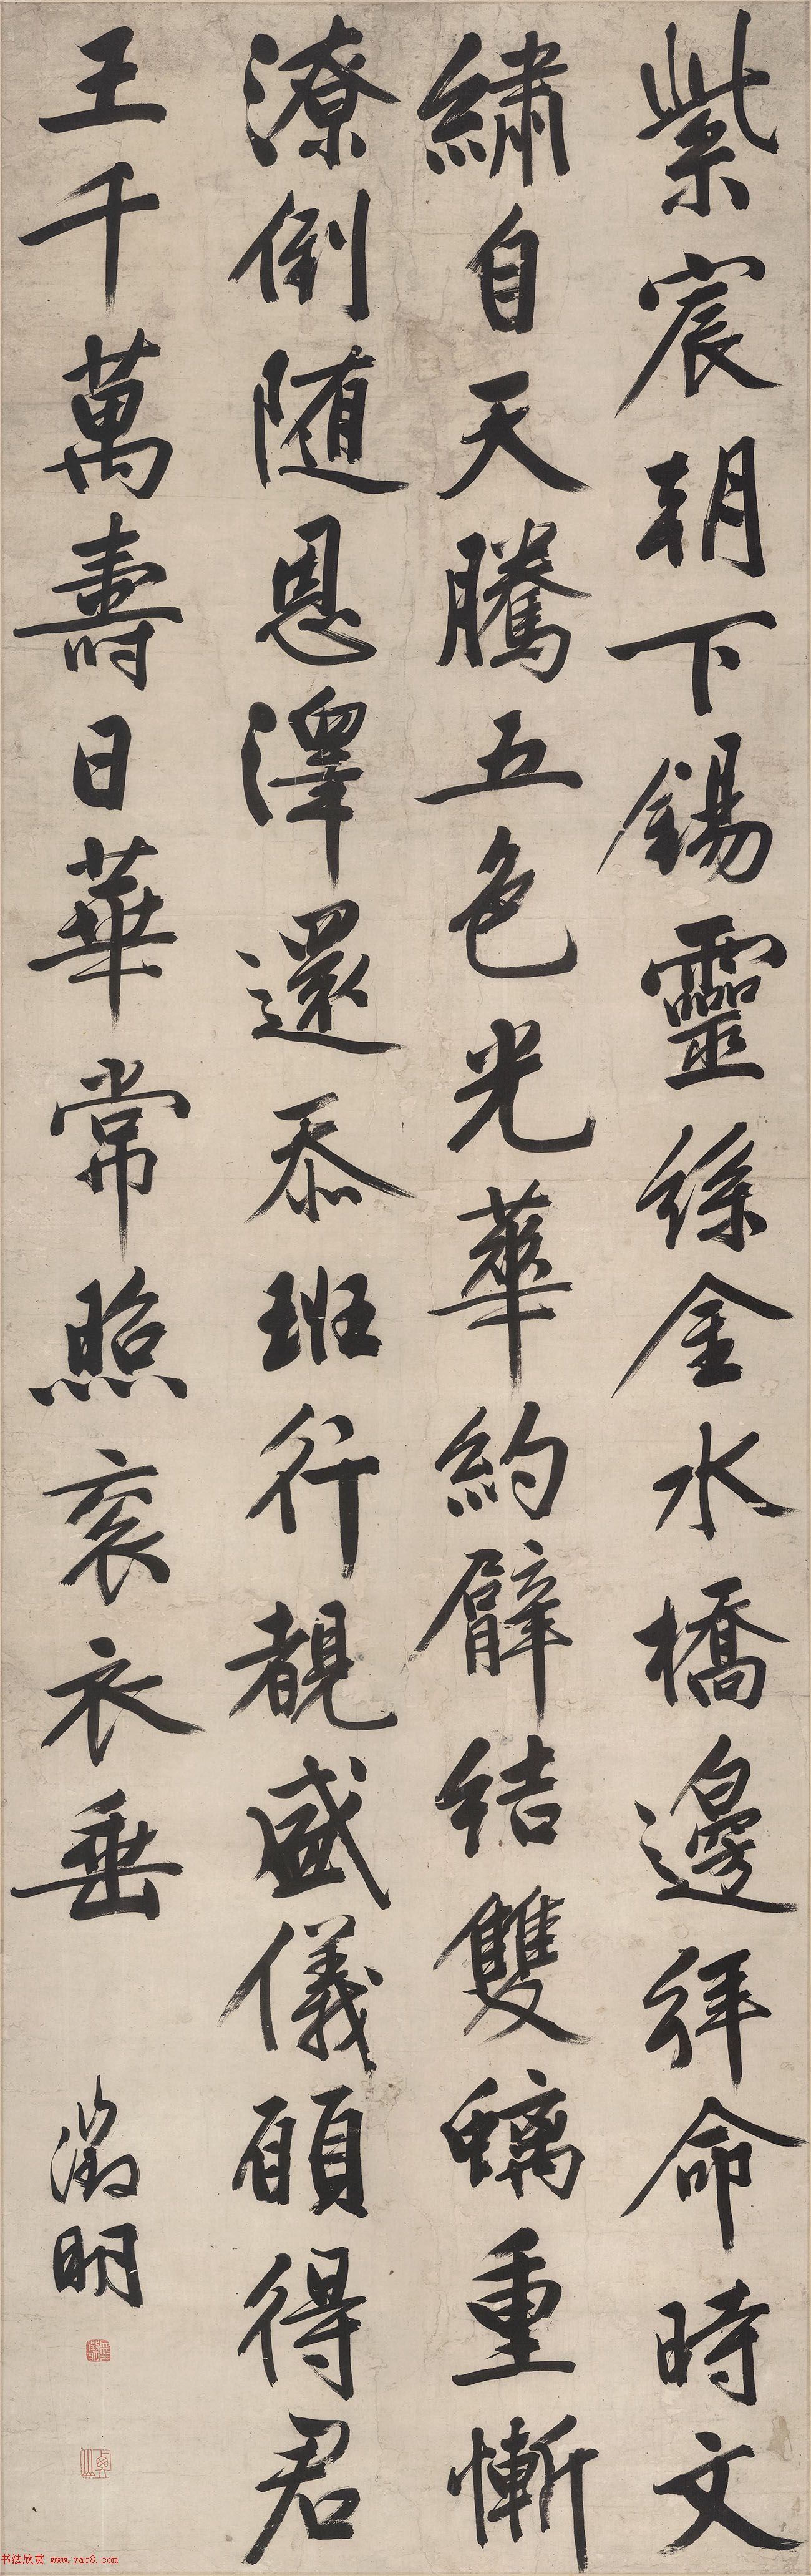 紫宸朝下錫靈絲金水橋邊拜命時文
繡自天騰五色光華約臂結雙螭重慚
潦倒隨恩澤還忝班行覩盛儀願得君
王千萬壽日華常照袞衣垂
徵明
书法欣赏 www.yac8.com